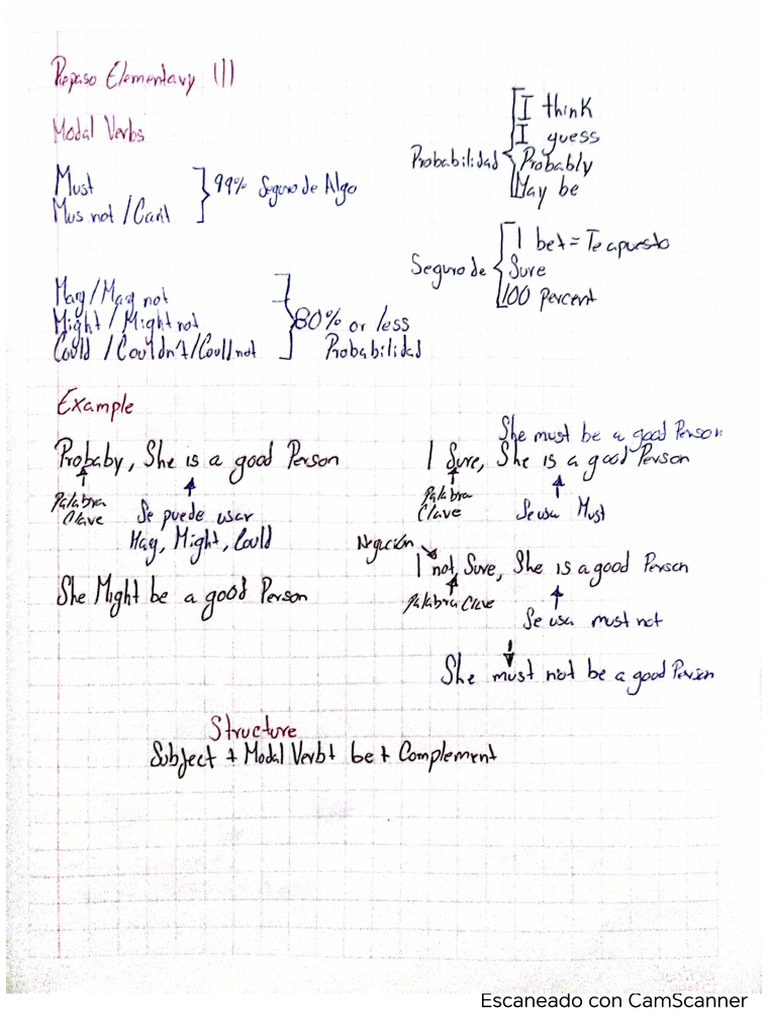 Repaso Elementary III
Modal Verbs
Must
Mus not / Can't
99% Seguro de Algo
Probabilidad
I think
I guess
Probably
May be
Seguro de
I bet = Te apuesto
Sure
100 Percent
May / May not
Might / Might not
Could / Couldn't / Could not
80% or less
Probabilidad
Example
Probaby, She is a good Person
Palabra
Clave
Se puede usar
May, Might, Could
She Might be a good Person
She must be a good Person
I Sure, She is a good Person
Palabra
Clave
Se usa Must
Negación
I not, Sure, She is a good Person
Palabra Clave
Se usa must not
She must not be a good Person
Structure
Subject + Modal Verb + be + Complement
Escaneado con CamScanner